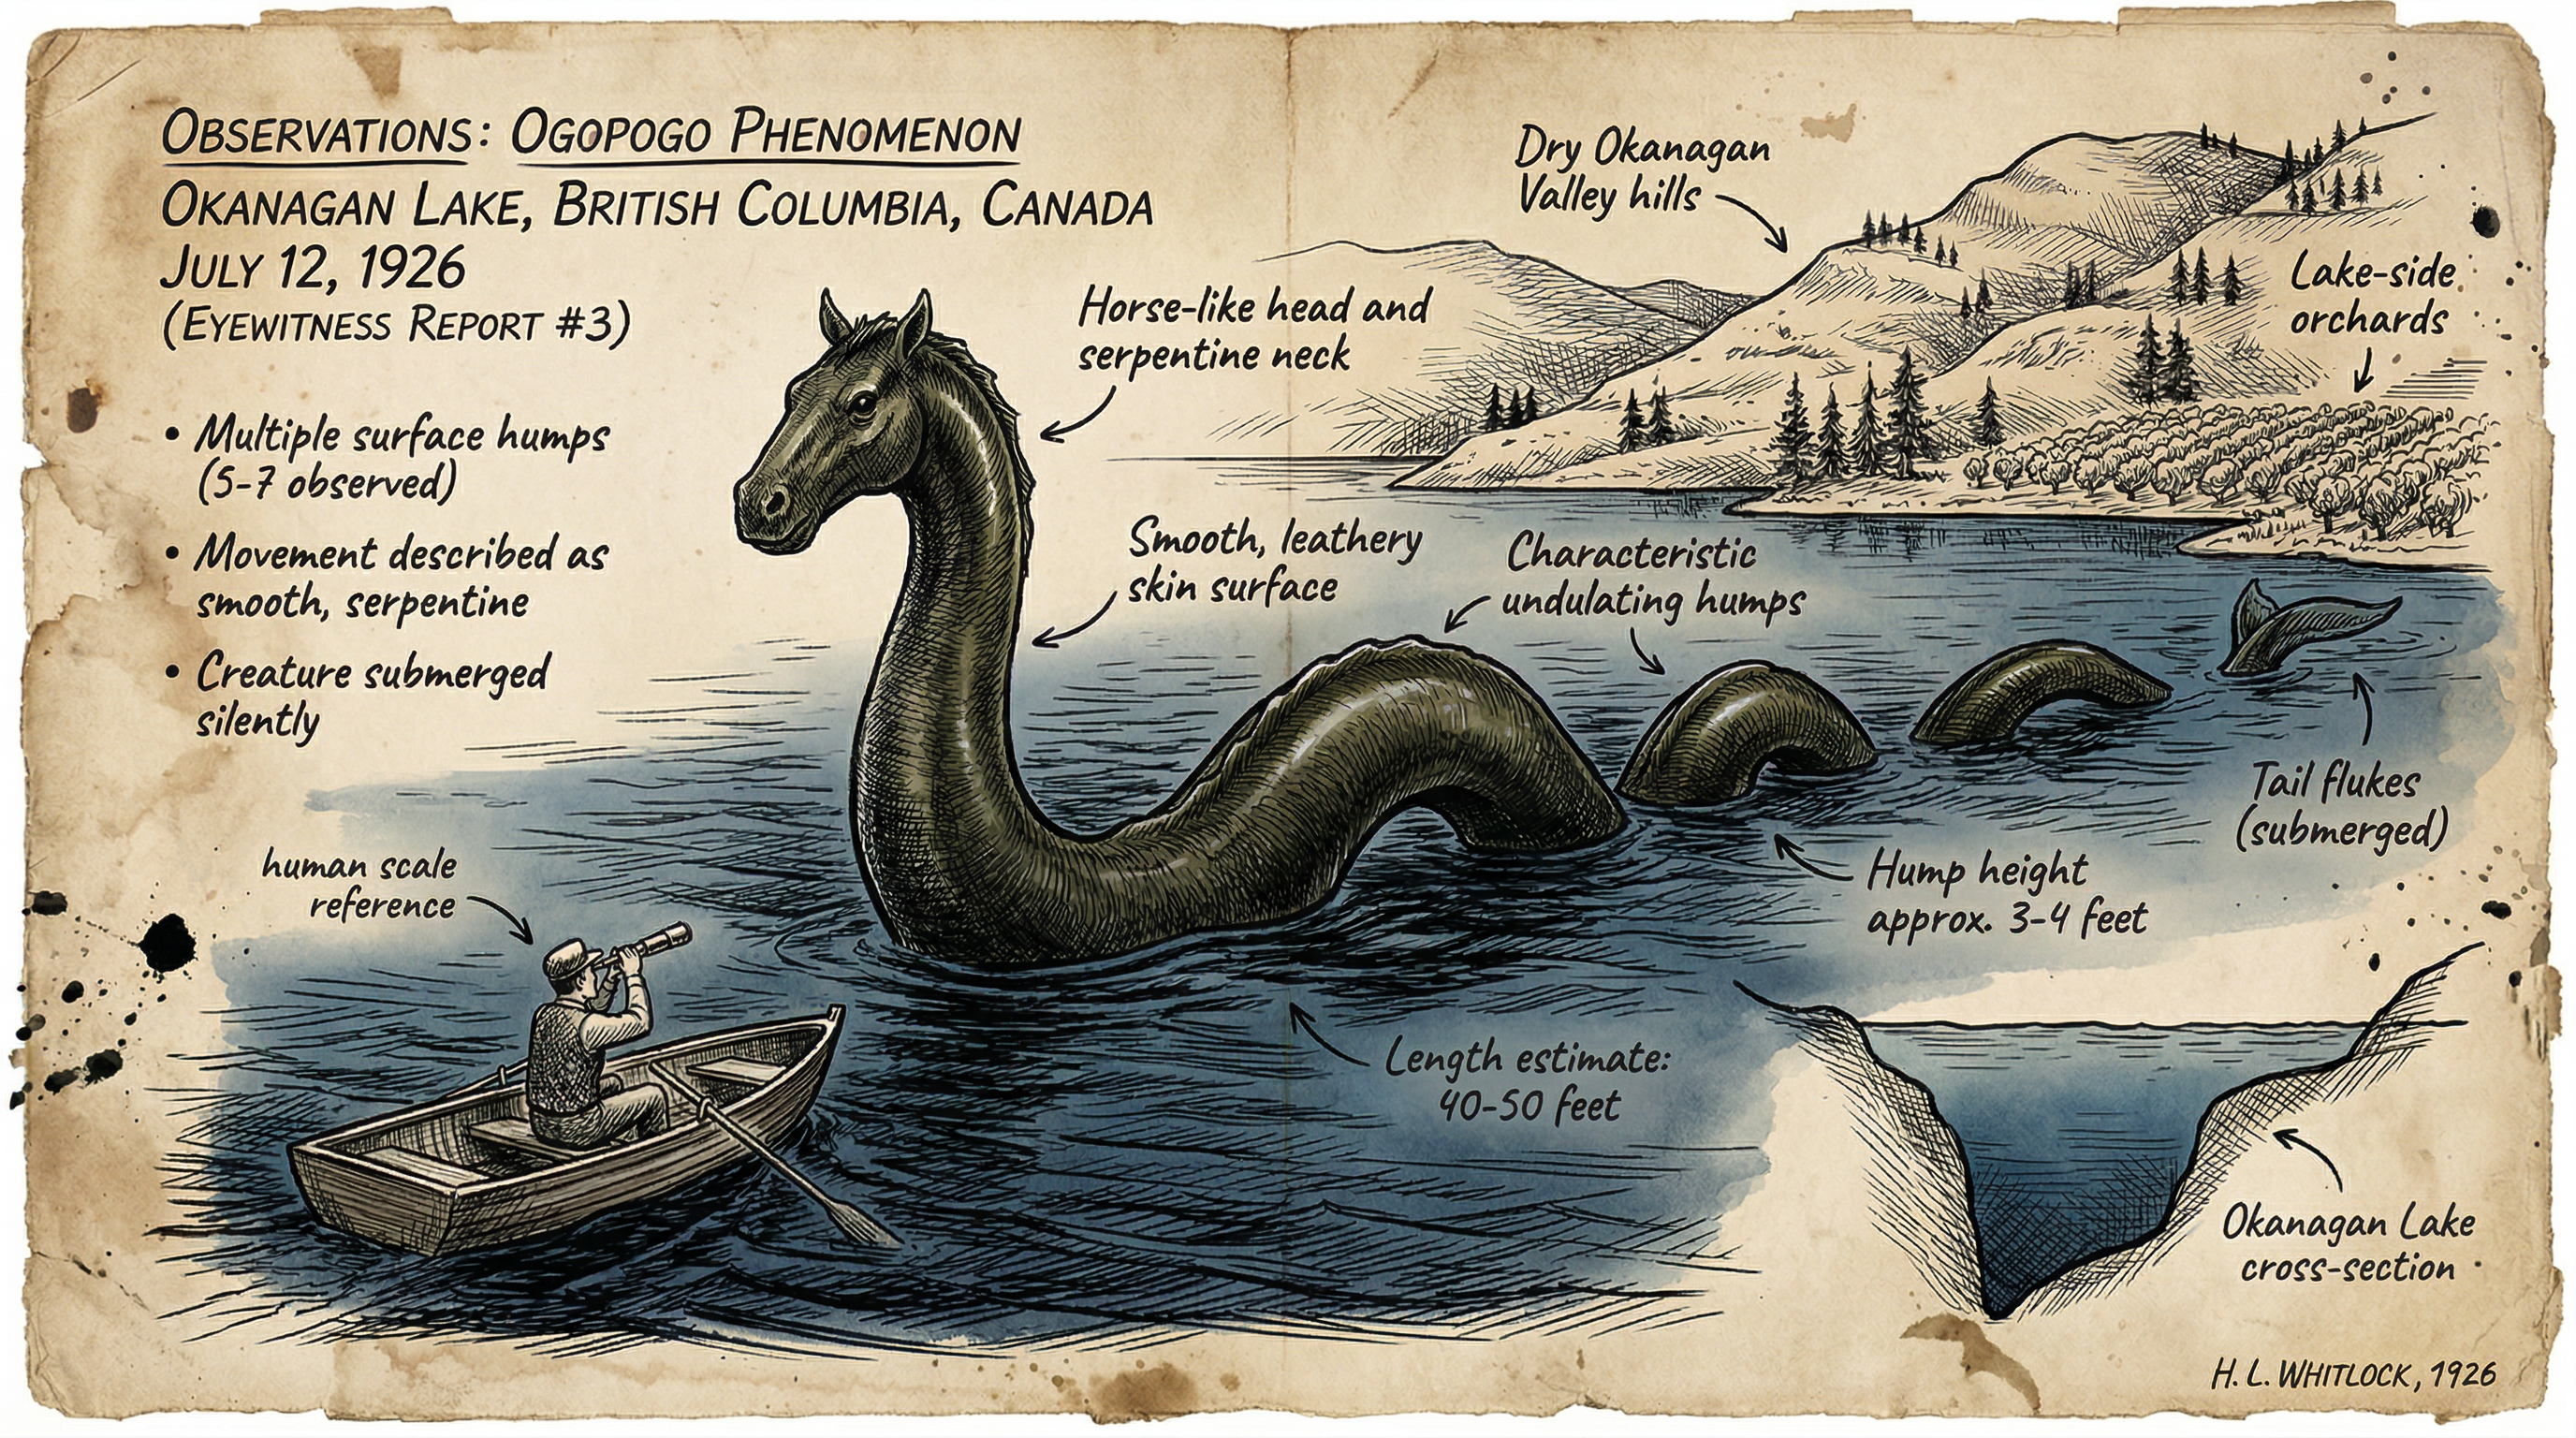 OBSERVATIONS: OGOPOGO PHENOMENON
OKANAGAN LAKE, BRITISH COLUMBIA, CANADA
JULY 12, 1926
(EYEWITNESS REPORT #3)
• Multiple surface humps
(5-7 observed)
• Movement described as
smooth, serpentine
• Creature submerged
silently
Horse-like head and
serpentine neck
Dry Okanagan
Valley hills
Lake-side
orchards
Smooth, leathery
skin surface
Characteristic
undulating humps
Tail flukes
(submerged)
Hump height
approx. 3-4 feet
human scale
reference
Length estimate:
40-50 feet
Okanagan Lake
cross-section
H. L. WHITLOCK, 1926